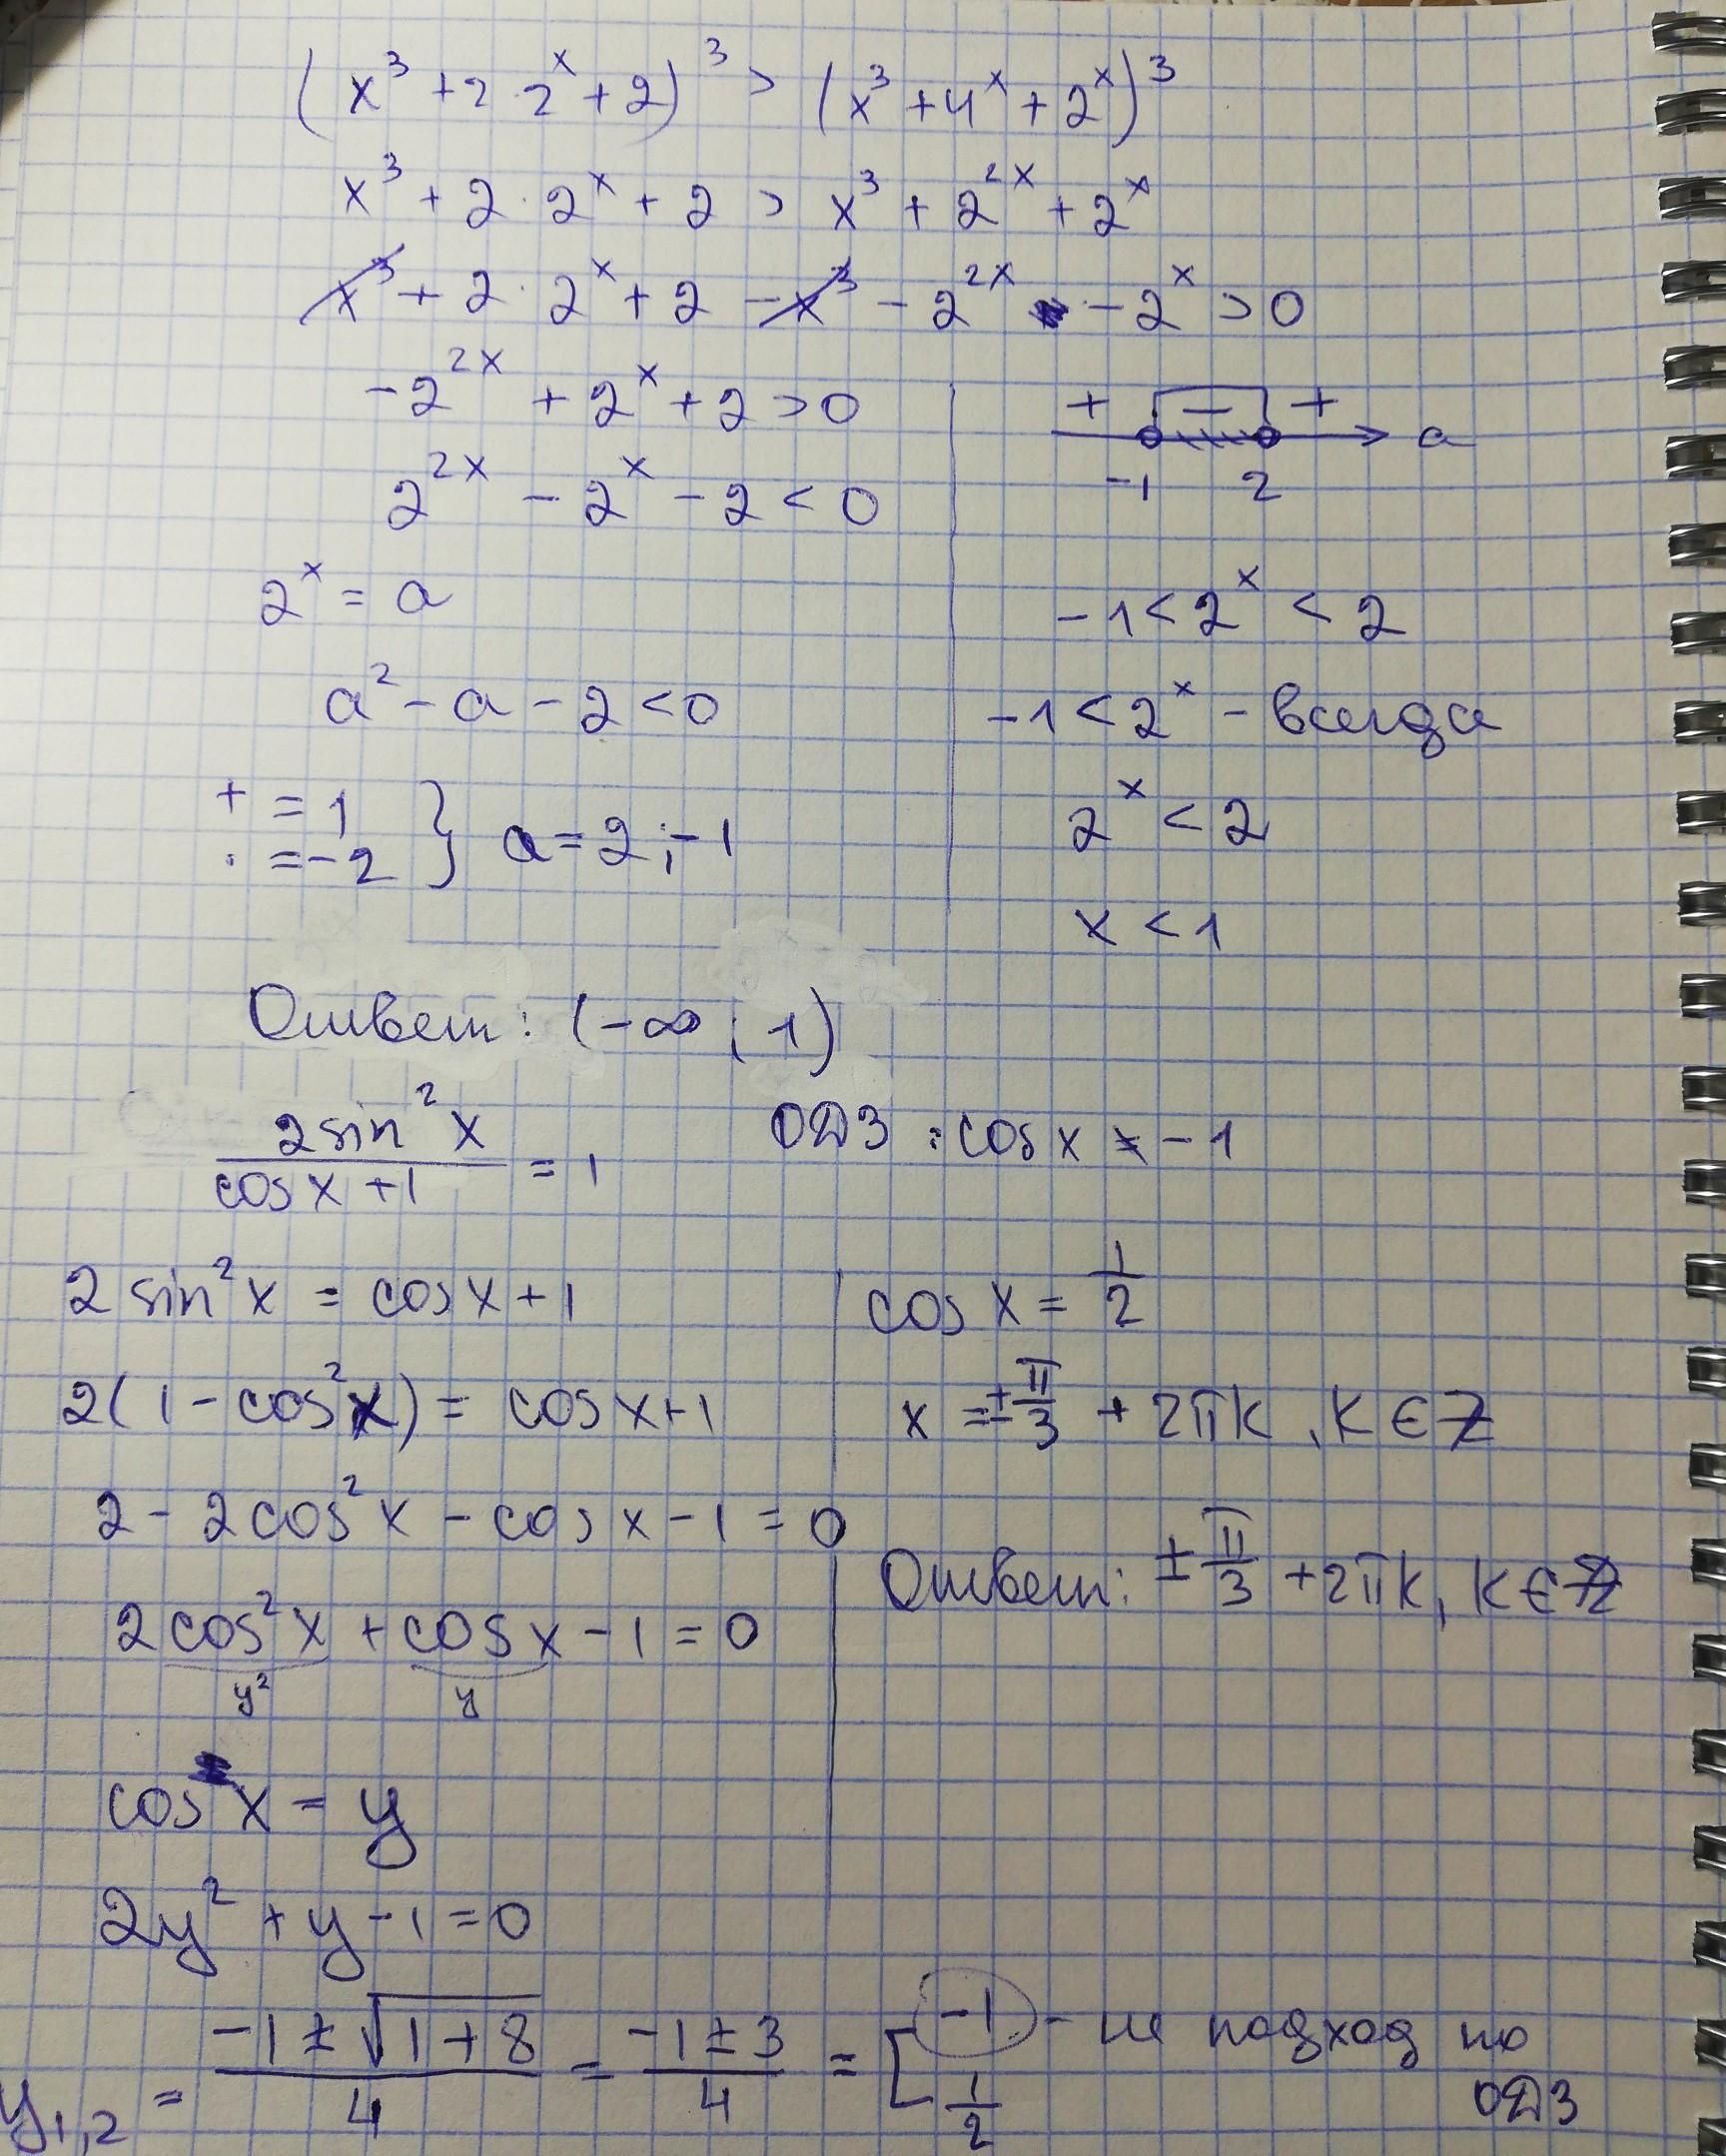 (x³ + 2 · 2ˣ + 2)³ > (x³ + 4ˣ + 2ˣ)³
x³ + 2 · 2ˣ + 2 > x³ + 2²ˣ + 2ˣ
x³ + 2 · 2ˣ + 2 - x³ - 2²ˣ - 2ˣ > 0
-2²ˣ + 2ˣ + 2 > 0
2²ˣ - 2ˣ - 2 < 0
2ˣ = a
a² - a - 2 < 0
+ = 1
· = -2 } a = 2; -1
+ - + a
-1 2
-1 < 2ˣ < 2
-1 < 2ˣ - всегда
2ˣ < 2
x < 1
Ответ: (-∞; 1)
2sin²x / cosx + 1 = 1
ОДЗ: cosx ≠ -1
2 sin²x = cosx + 1
2(1 - cos²x) = cosx + 1
2 - 2cos²x - cosx - 1 = 0
2cos²x + cosx - 1 = 0
y² y
cosx = y
2y² + y - 1 = 0
y₁,₂ = (-1 ± √(1 + 8)) / 4 = (-1 ± 3) / 4 = [ -1 - не подход по ОДЗ
1/2
cos x = 1/2
x = ± π/3 + 2πk, k ∈ Z
Ответ: ± π/3 + 2πk, k ∈ Z